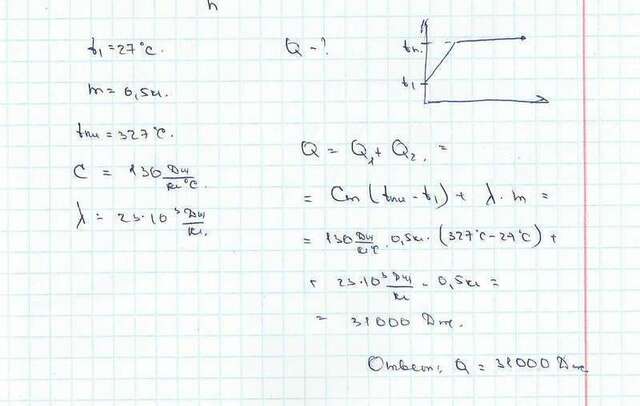 t₁ = 27°C.
Q - ?
m = 0,5кг.
tпл = 327°C.
C = 130 Дж/кг°C.
λ = 25·10³ Дж/кг.
tп.
t₁
Q = Q₁ + Q₂ =
= Cm (tпл - t₁) + λ·m =
= 130 Дж/кг°C · 0,5кг · (327°C - 27°C) +
+ 25·10³ Дж/кг · 0,5кг =
= 31000 Дж.
Ответ: Q = 31000 Дж